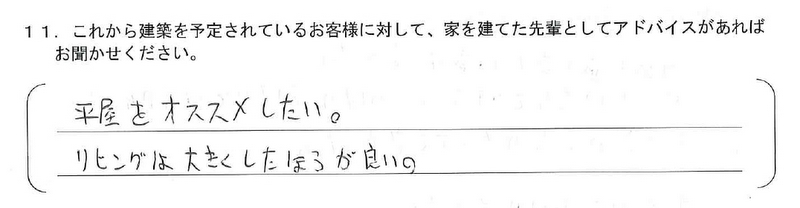 １１．これから建築を予定されているお客様に対して、家を建てた先輩としてアドバイスがあれば
お聞かせください。
平屋をオススメしたい。
リビングは大きくしたほうが良い。